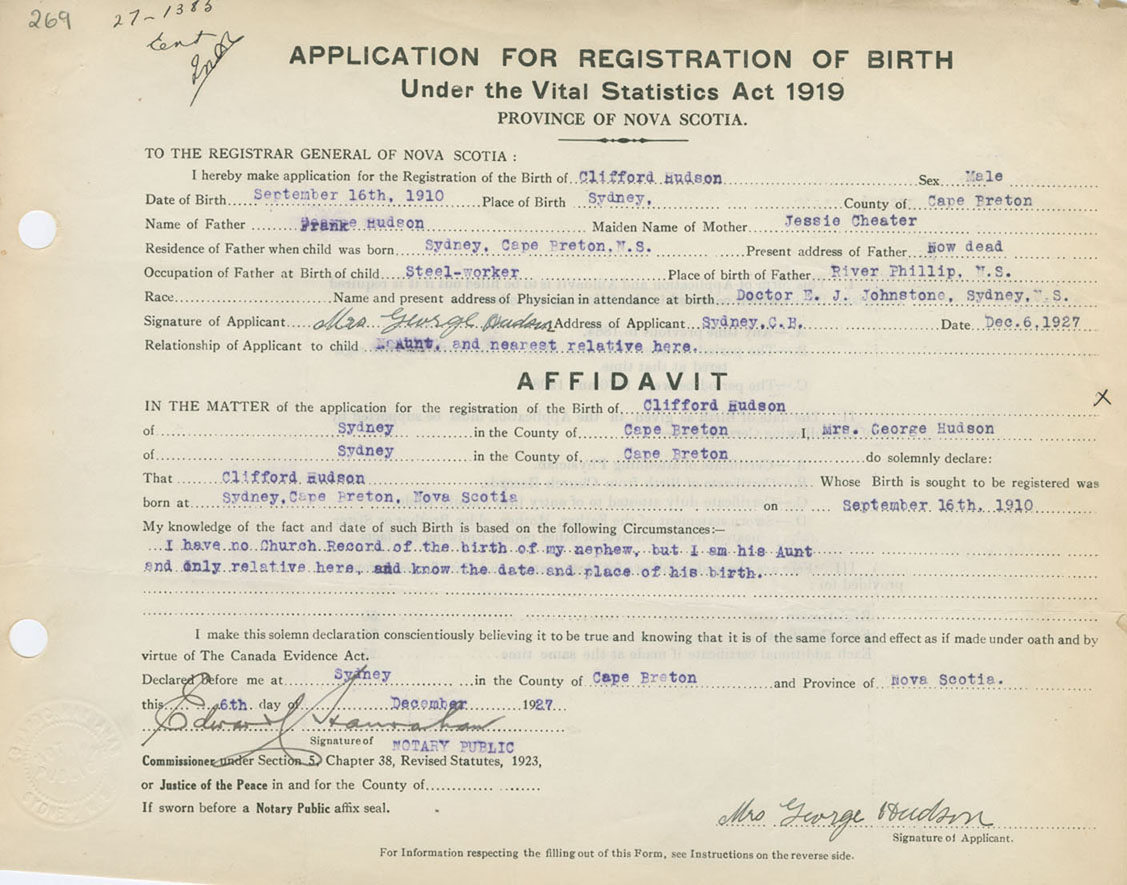 269
27-1385
APPLICATION FOR REGISTRATION OF BIRTH
Under the Vital Statistics Act 1919
PROVINCE OF NOVA SCOTIA.
TO THE REGISTRAR GENERAL OF NOVA SCOTIA :
I hereby make application for the Registration of the Birth of Clifford Hudson Sex Male
Date of Birth September 16th, 1910 Place of Birth Sydney, County of Cape Breton
Name of Father Frank Hudson Maiden Name of Mother Jessie Cheater
Residence of Father when child was born Sydney, Cape Breton, N.S. Present address of Father Now dead
Occupation of Father at Birth of child Steel-worker Place of birth of Father River Phillip, N.S.
Race Name and present address of Physician in attendance at birth Doctor E. J. Johnstone, Sydney, N.S.
Signature of Applicant Mrs. George Hudson Address of Applicant Sydney, C.B. Date Dec. 6, 1927
Relationship of Applicant to child Aunt, and nearest relative here.
AFFIDAVIT
X
IN THE MATTER of the application for the registration of the Birth of Clifford Hudson
of Sydney in the County of Cape Breton I, Mrs. George Hudson
of Sydney in the County of Cape Breton do solemnly declare:
That Clifford Hudson Whose Birth is sought to be registered was
born at Sydney, Cape Breton, Nova Scotia on September 16th, 1910
My knowledge of the fact and date of such Birth is based on the following Circumstances:—
I have no Church Record of the birth of my nephew, but I am his Aunt
and only relative here, and know the date and place of his birth.
I make this solemn declaration conscientiously believing it to be true and knowing that it is of the same force and effect as if made under oath and by
virtue of The Canada Evidence Act.
Declared Before me at Sydney in the County of Cape Breton and Province of Nova Scotia.
this 6th. day of December 1927
Edward Hanrahan
Signature of NOTARY PUBLIC
Commissioner under Section 5, Chapter 38, Revised Statutes, 1923,
or Justice of the Peace in and for the County of
If sworn before a Notary Public affix seal.
Mrs George Hudson
Signature of Applicant.
For Information respecting the filling out of this Form, see Instructions on the reverse side.